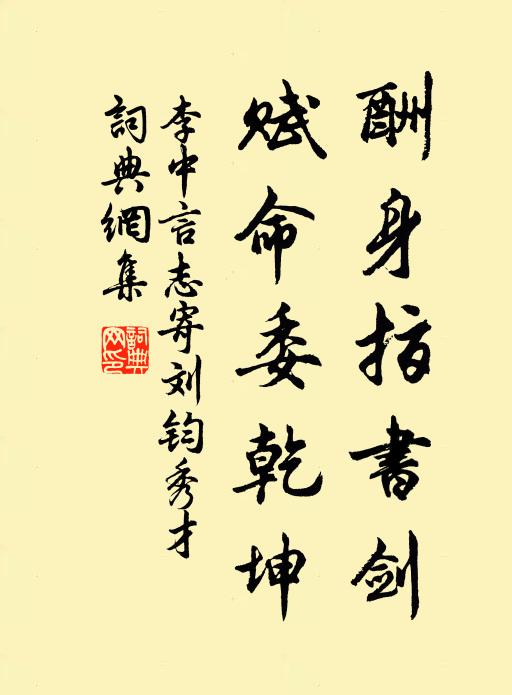 酬身指書劍
赋命委乾坤
李中言志寄刘钧秀才
詞典網集
詞典网印